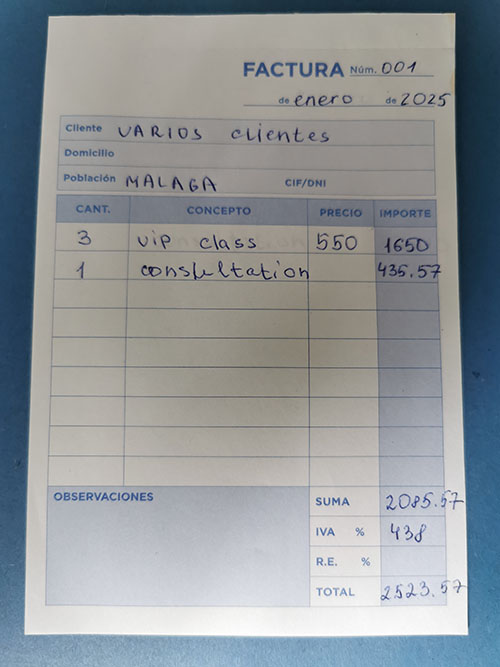 FACTURA Núm. 001
de enero de 2025
Cliente VARIOS clientes
Domicilio
Población MALAGA CIF/DNI
CANT. CONCEPTO PRECIO IMPORTE
3 vip class 550 1650
1 consultation 435.57
OBSERVACIONES SUMA 2085.57
IVA % 438
R.E. %
TOTAL 2523.57